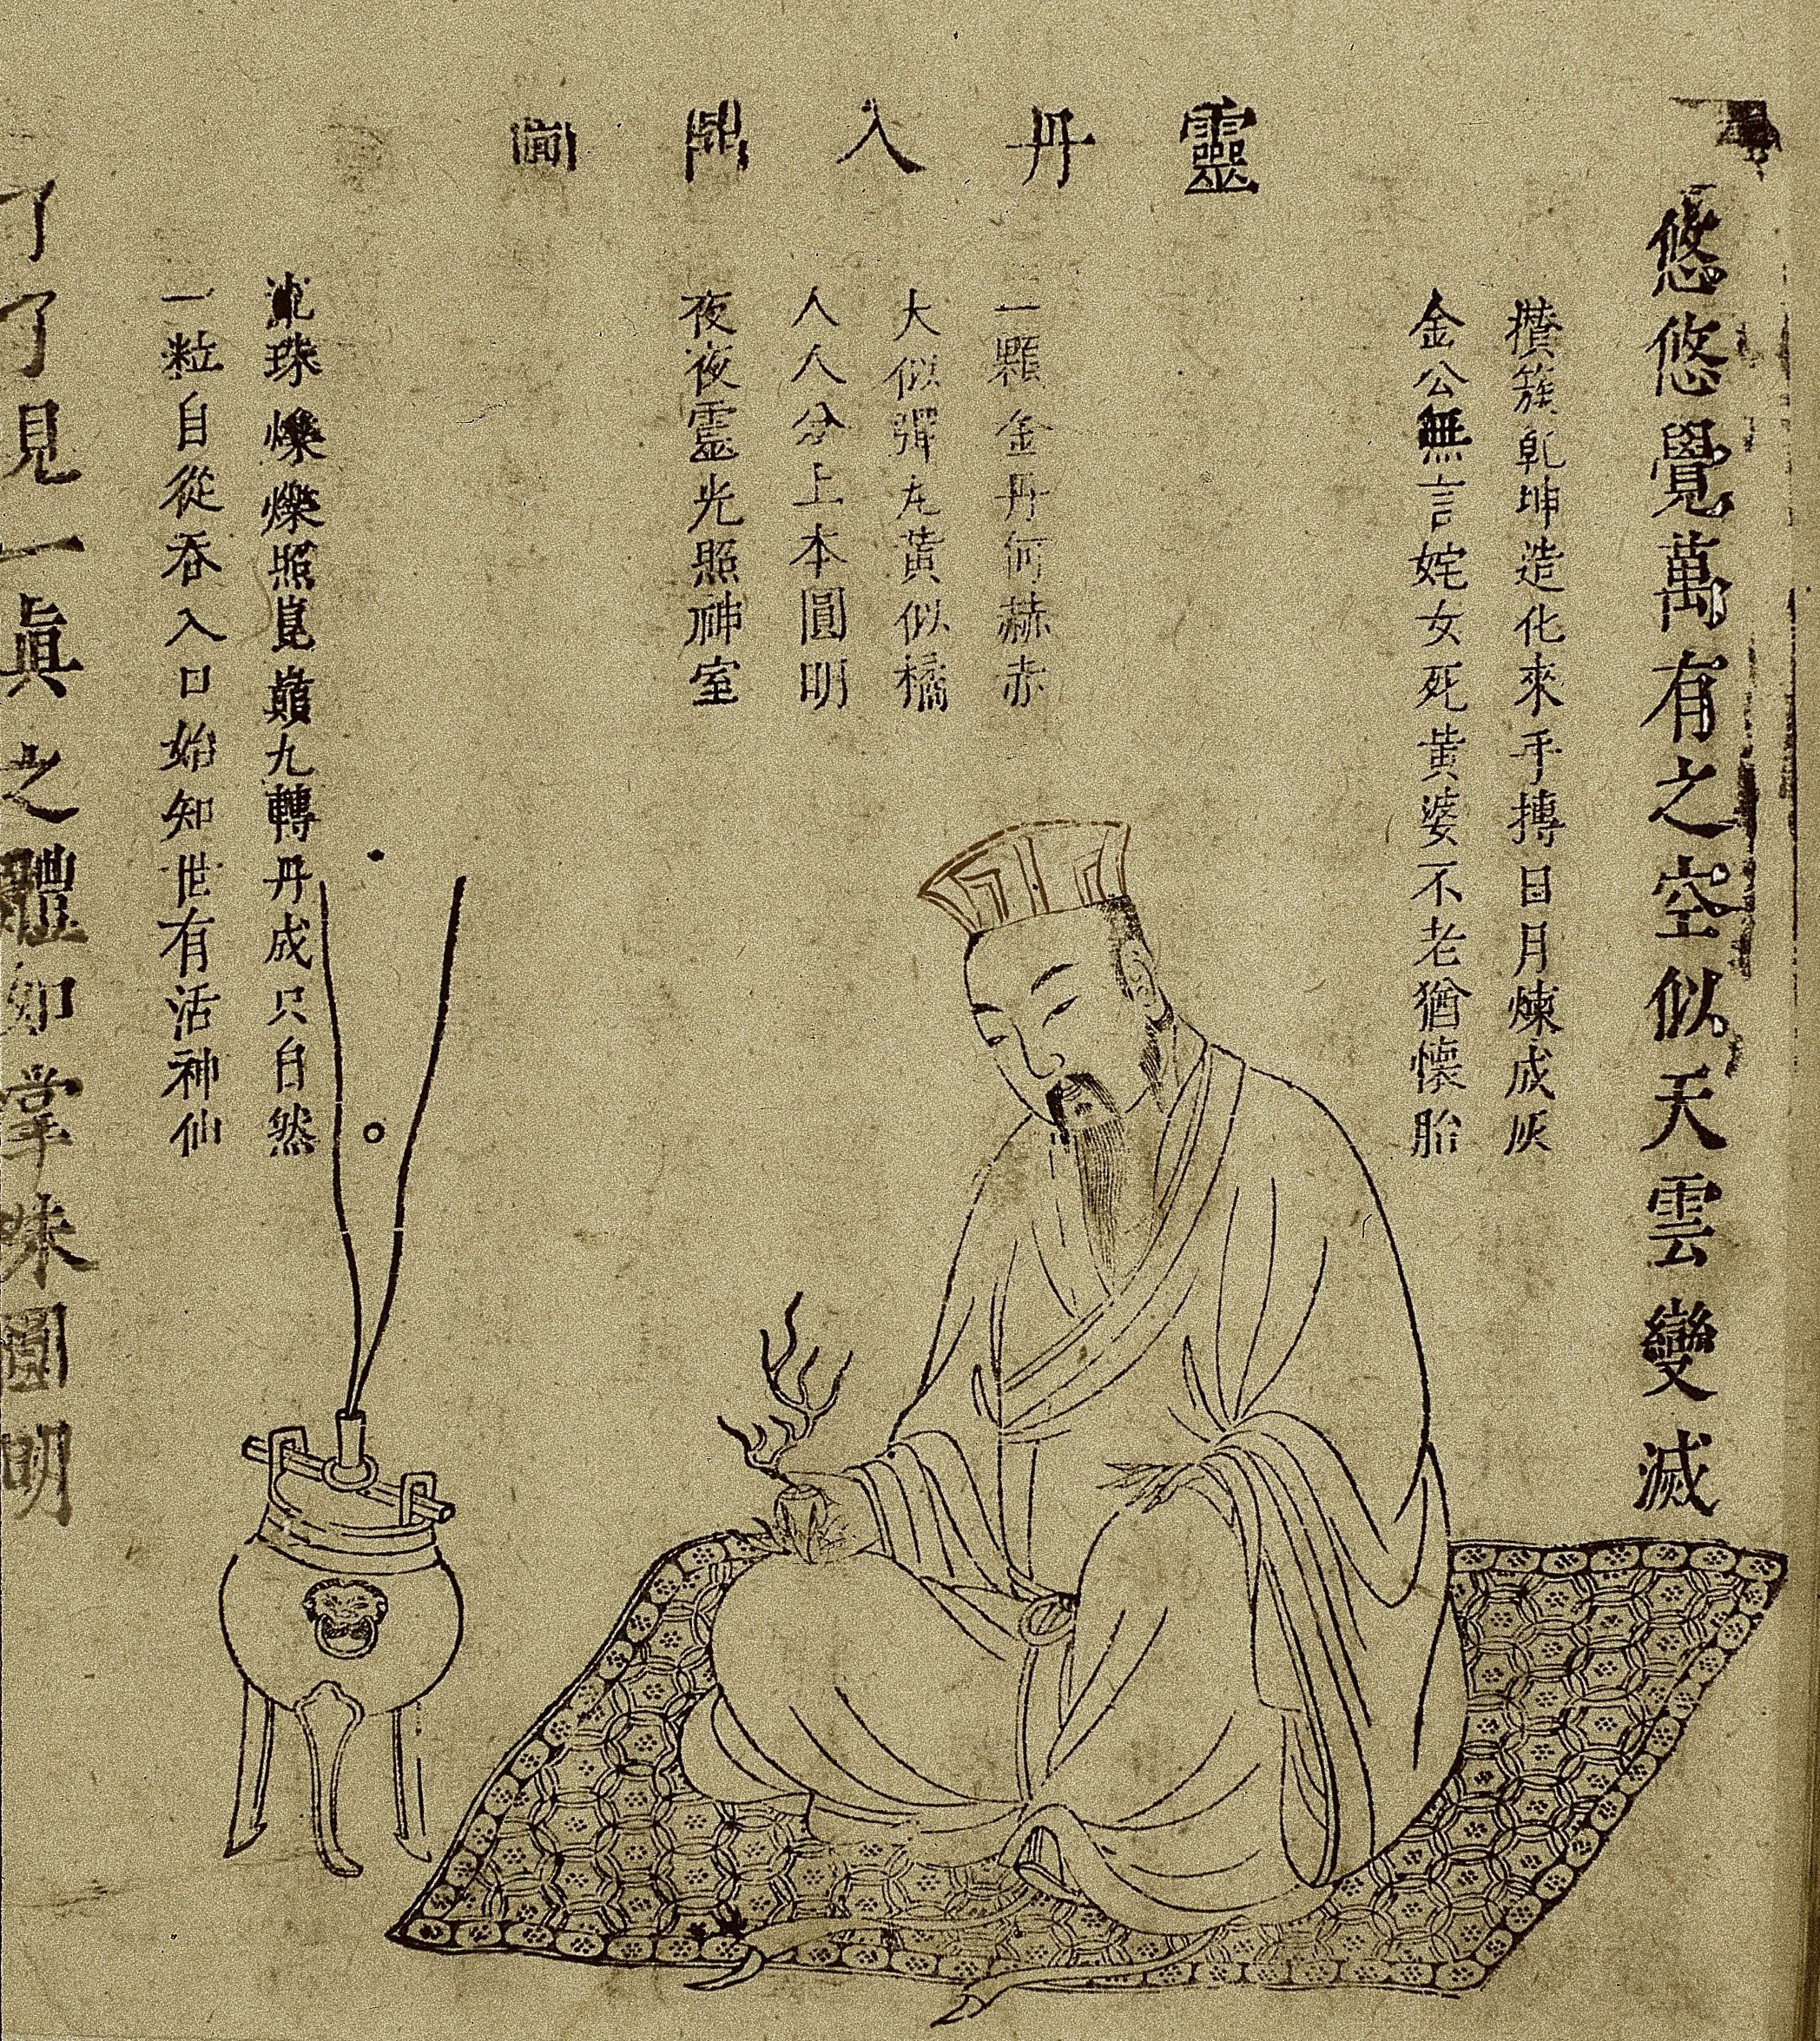 悠悠覺萬有之空似天雲變滅
靈丹入鼎圖
攢簇乾坤造化來手摶日月煉成灰
金公無言姹女死黃婆不老猶懷胎
一顆金丹何赫赤
大似彈丸黃似橘
人人分上本圓明
夜夜靈光照神室
珠爍爍照崑巔九轉丹成只自然
一粒自從吞入口始知世有活神仙
了了見一眞之體如掌珠圓明